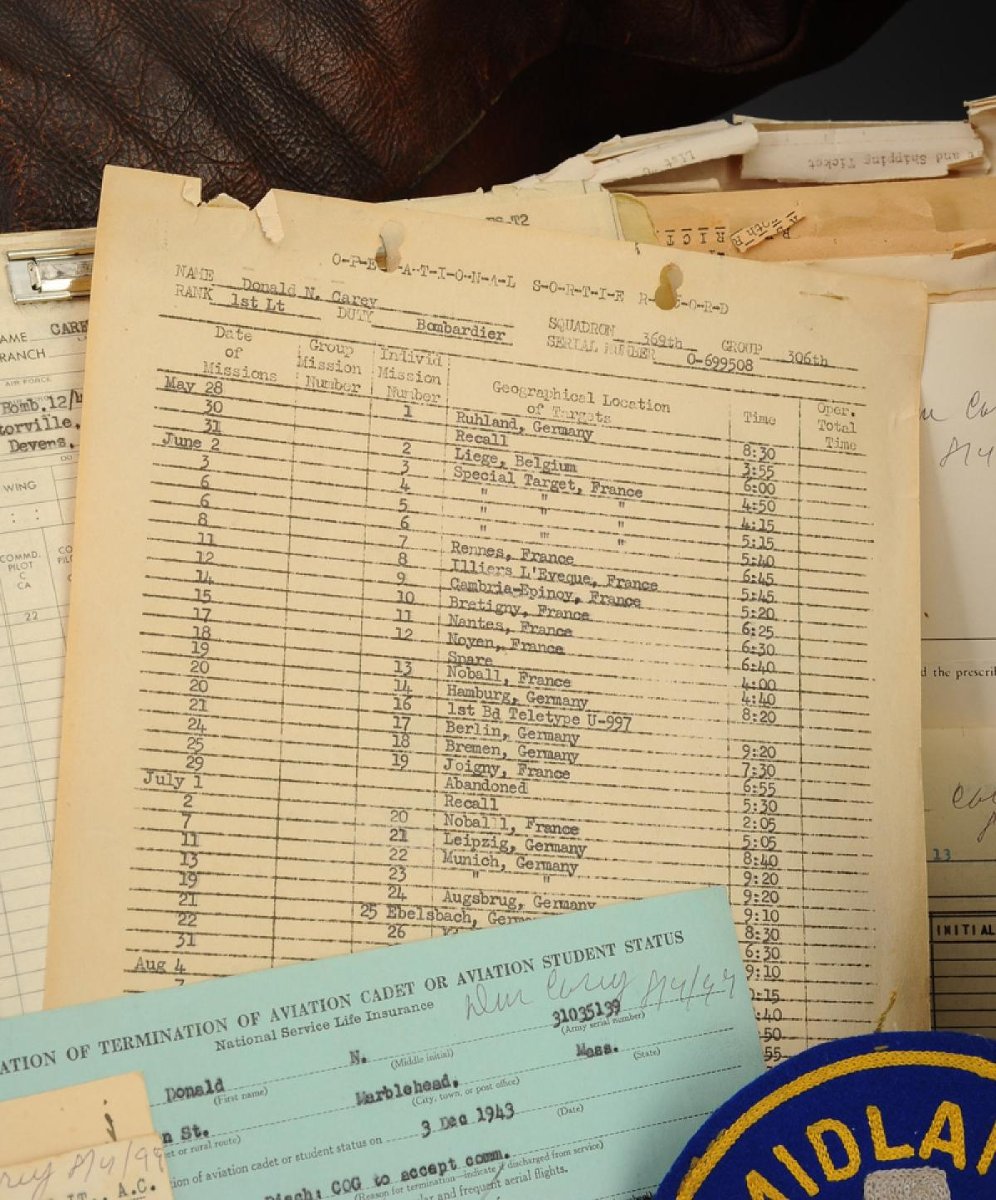 List
and Shipping Ticket
ES-T2
RICT
O-P-E-R-A-T-I-O-N-A-L S-O-R-T-I-E R-E-C-O-R-D
NAME Donald N. Carey SQUADRON 369th GROUP 306th
RANK 1st Lt DUTY Bombardier SERIAL NUMBER O-699508
Date of Missions Group Mission Number Individ Mission Number Geographical Location of Targets Time Oper. Total Time
May 28 1 Ruhland, Germany 8:30
30 Recall 3:55
31 2 Liege, Belgium 6:00
June 2 3 Special Target, France 4:50
3 4 " " " 4:15
6 5 " " " 5:15
6 6 " " " 5:40
8 7 Rennes, France 6:45
11 8 Illiers L'Eveque, France 5:45
12 9 Cambria-Epinoy, France 5:20
14 10 Bretigny, France 6:25
15 11 Nantes, France 6:30
17 12 Noyen, France 6:40
18 Spare 4:00
19 13 Noball, France 4:40
20 14 Hamburg, Germany 8:20
20 16 1st Bd Teletype U-997
21 17 Berlin, Germany 9:20
24 18 Bremen, Germany 7:30
25 19 Joigny, France 6:55
29 Abandoned 5:30
July 1 Recall 2:05
2 20 Noball, France 5:05
7 21 Leipzig, Germany 8:40
11 22 Munich, Germany 9:20
13 23 " " 9:20
19 24 Augsbrug, Germany 9:10
21 25 Ebelsbach, Germ 8:30
22 26 6:30
31 9:10
Aug 4 :15
7 :40
:50
:55
AME CARE
RANCH
AIR FORCE
Bomb.12/
torville,
Devens,
WING
: :
COMMD. PILOT C CA
22
d the prescri
13
INITIAL
ATION OF TERMINATION OF AVIATION CADET OR AVIATION STUDENT STATUS
National Service Life Insurance
Don Carey 8/4/97
31035139
(Army serial number)
Donald N.
(First name) (Middle initial)
Marblehead, Mass.
(City, town, or post office) (State)
n St.
et or rural route)
ion of aviation cadet or student status on 3 Dec 1943
(Date)
Disch: COG to accept comm.
(Reason for termination—indicate if discharged from service)
lar and frequent aerial flights.
rey 8/4/97
LT., A.C.
MIDLAN